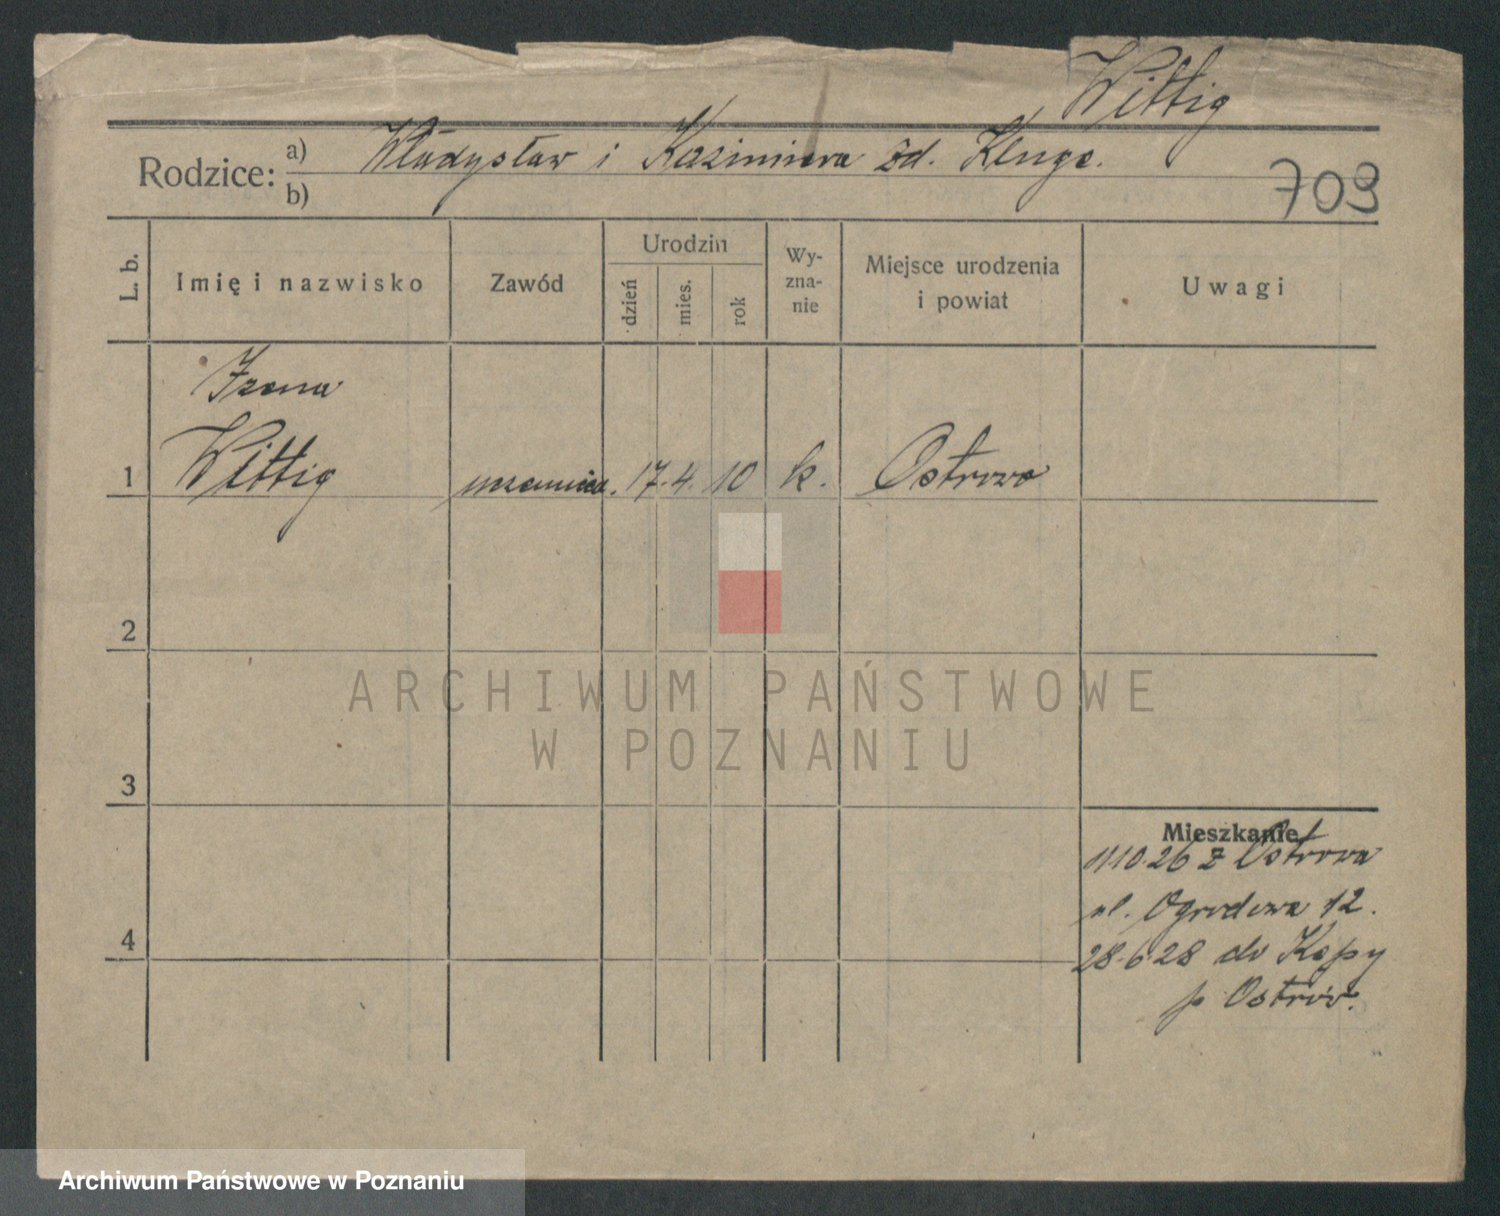 Wittig
Rodzice: a) Władysław i Kazimiera zd. Kluge.
b)
709
L. b.
Imię i nazwisko
Zawód
Urodzin
dzień
mies.
rok
Wy-
zna-
nie
Miejsce urodzenia
i powiat
Uwagi
Irena
1 Wittig uczennica. 17. 4. 10 k. Ostrowo
2
ARCHIWUM PAŃSTWOWE
W POZNANIU
3
Mieszkanie
1110.26 z Ostrowa
ul. Ogrodowa 12.
4
28.6.28 do Kępy
p Ostrów.
Archiwum Państwowe w Poznaniu